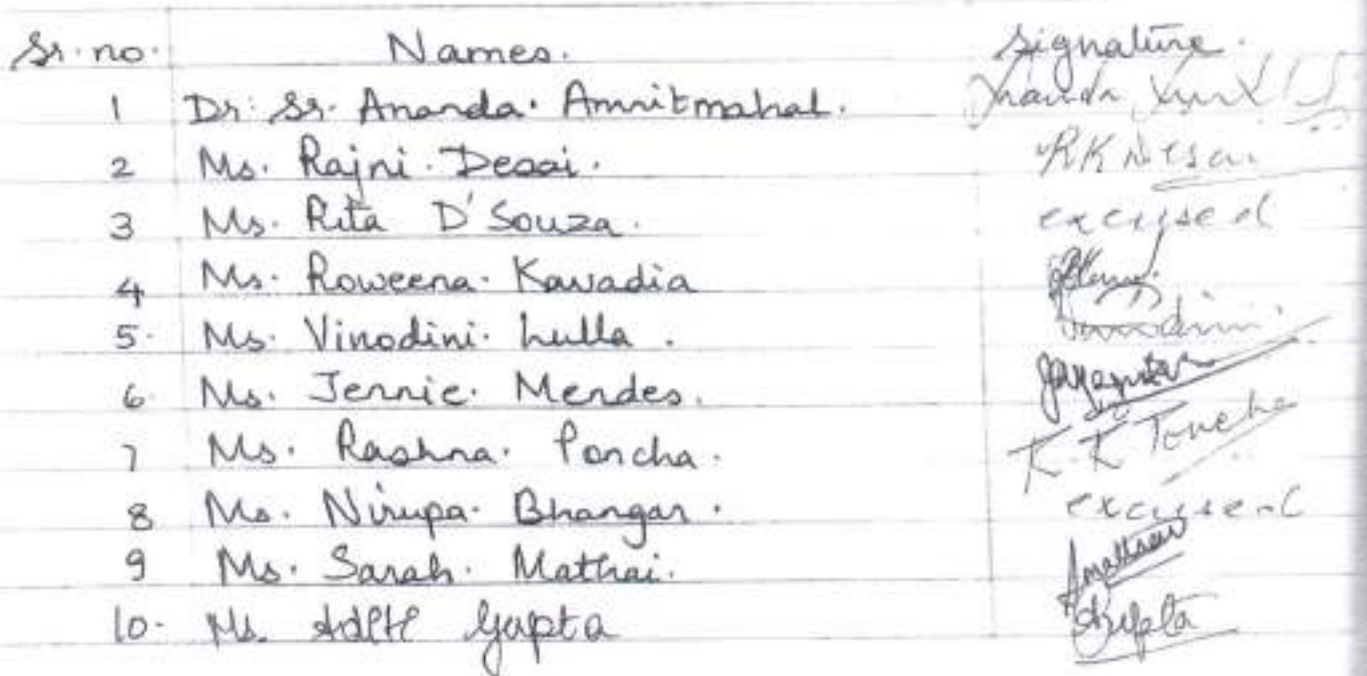 Sr. no. Names. Signature.
1 Dr. Sr. Ananda. Amritmahal.
2 Ms. Rajni. Desai. RK Desai
3 Ms. Rita D'Souza. excused
4 Ms. Roweena. Kavadia
5. Ms. Vinodini. Lulla. Vinodini
6. Ms. Jennie. Mendes.
7 Ms. Rashna. Poncha. R.K Poncha
8 Ms. Nirupa. Bhangar. excused
9 Ms. Sarah. Mathai. Smathai
10. Ms. Aditi Gupta AGupta